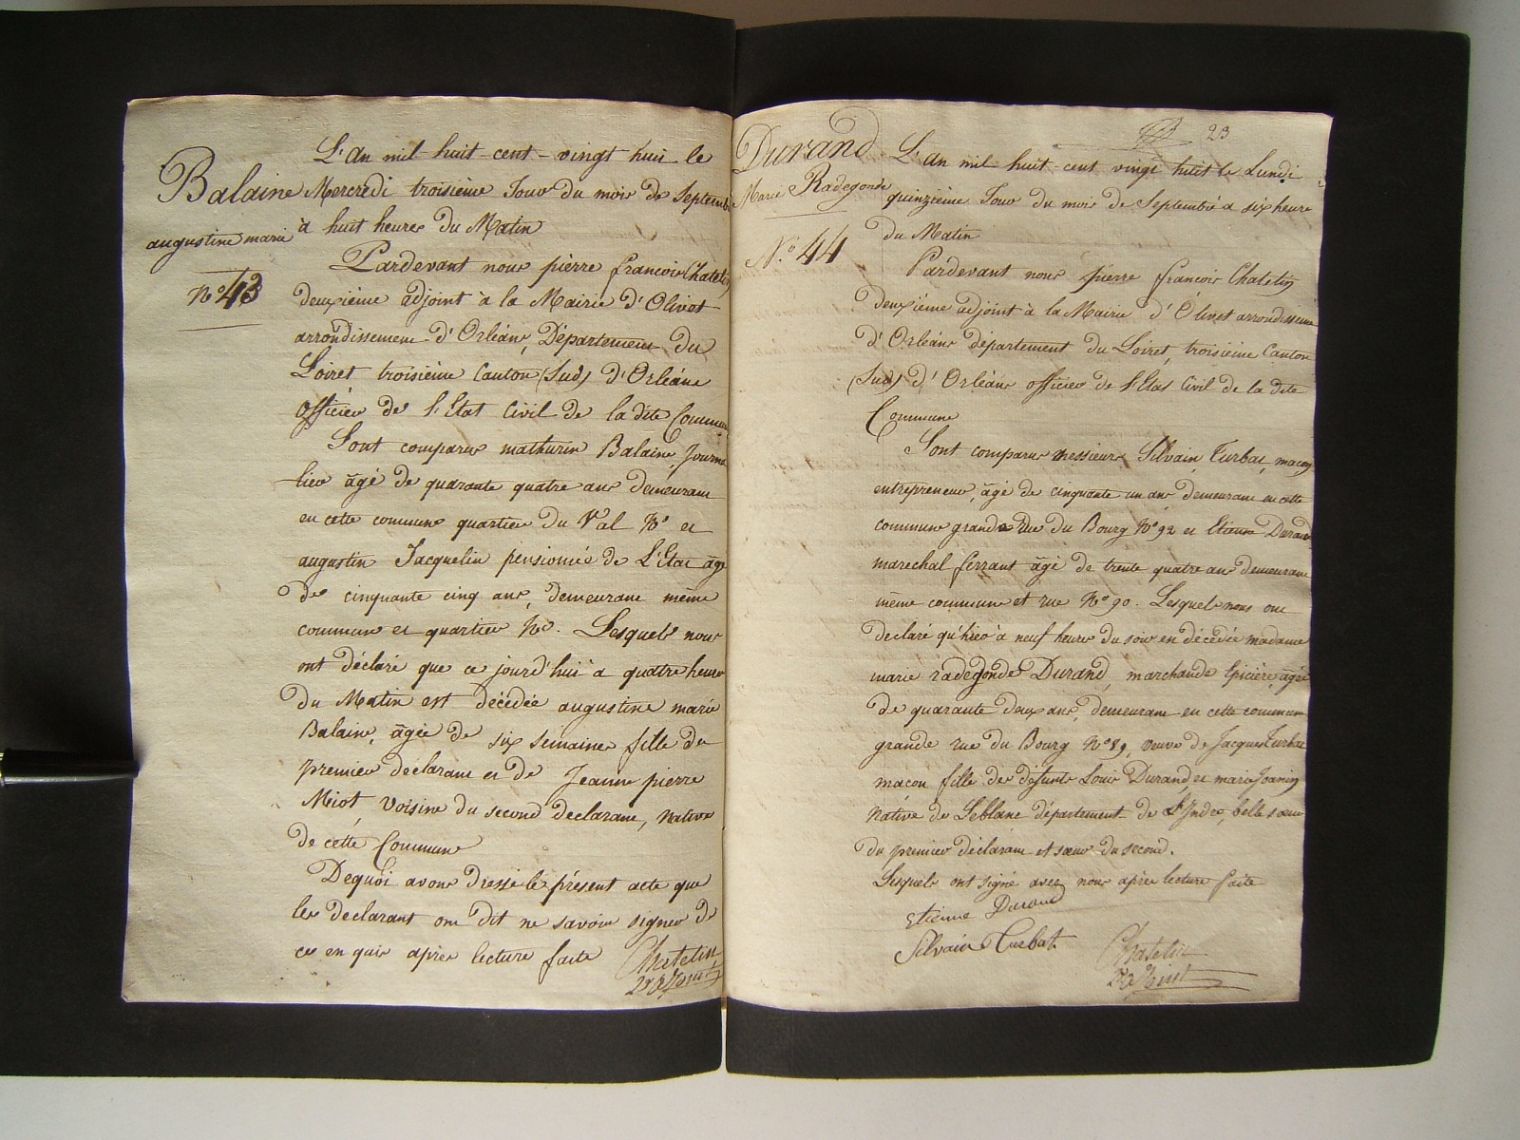 Balaine
augustine marie
N.o 43
L'An mil huit cent vingt huit le
Mercredi troisième Jour du mois de Septemb
à huit heures du Matin
Pardevant nous pierre francois Chatelin
deuxième adjoint à la Mairie d'Olivet
arrondissement d'Orléans, Département du
Loiret, troisième Canton (Sud) d'Orléans
officier de l'Etat Civil de la dite Commun
Sont comparus mathurin Balaine, Journa
lier âgé de quarante quatre ans demeurant
en cette commune quartier du Val No et
augustin Jacquelin pensionné de L'Etat âgé
de cinquante cinq ans, demeurant même
commune et quartier No. Lesquels nous
ont déclaré que ce jourd'hui à quatre heures
du Matin est décédée augustine marie
Balaine, âgée de six semaines fille du
premier declarant et de Jeanne pierre
Miot, voisine du second declarant, Native
de cette Commune
Dequoi avons dressé le présent acte que
les declarant ont dit ne savoir signer de
ce enquis après lecture faite
Chatelin
2e adjoint
23
Durand
Marie Radegonde
N.o 44
L'An mil huit cent vingt huit le Lundi
quinzième Jour du mois de Septembre à six heure
du Matin
Pardevant nous pierre francois Chatelin
deuxième adjoint à la Mairie d'Olivet arrondisseme
d'Orléans département du Loiret, troisième Canton
(Sud) d'Orléans officier de l'Etat Civil de la dite
Commune
Sont comparus messieurs Silvain Turbat, macon
entrepreneur, âgé de cinquante un ans demeurant en cette
commune grande rue du Bourg No 92 et Etienne Durand
marechal ferrant âgé de trente quatre ans demeurant
même commune et rue No 90. Lesquels nous ont
declaré qu'hier à neuf heures du soir en décédée madame
marie radegonde Durand, marchande Epicière, agée
de quarante deux ans, demeurant en cette commune
grande rue du Bourg No 89, veuve de Jacques Turbat
macon fille de defunts Louis Durand et marie Joanin
Native de Leblanc département de L'Yndre, belle sœur
du premier déclarant et sœur du second.
Lesquels ont signé avec nous après lecture faite
Etienne Durand
Silvain Turbat
Chatelin
2e adjoint